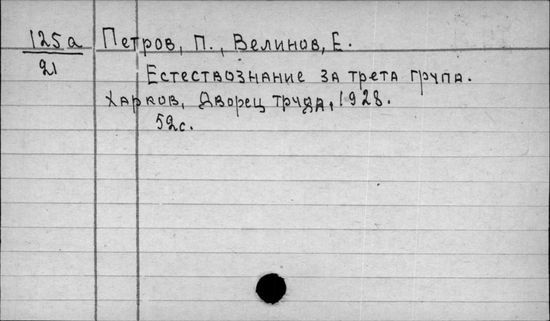 125а Петров, П., Велинов, Е.
21
Естествознание за трета група.
Харков, Дворец труда, 1928.
52с.